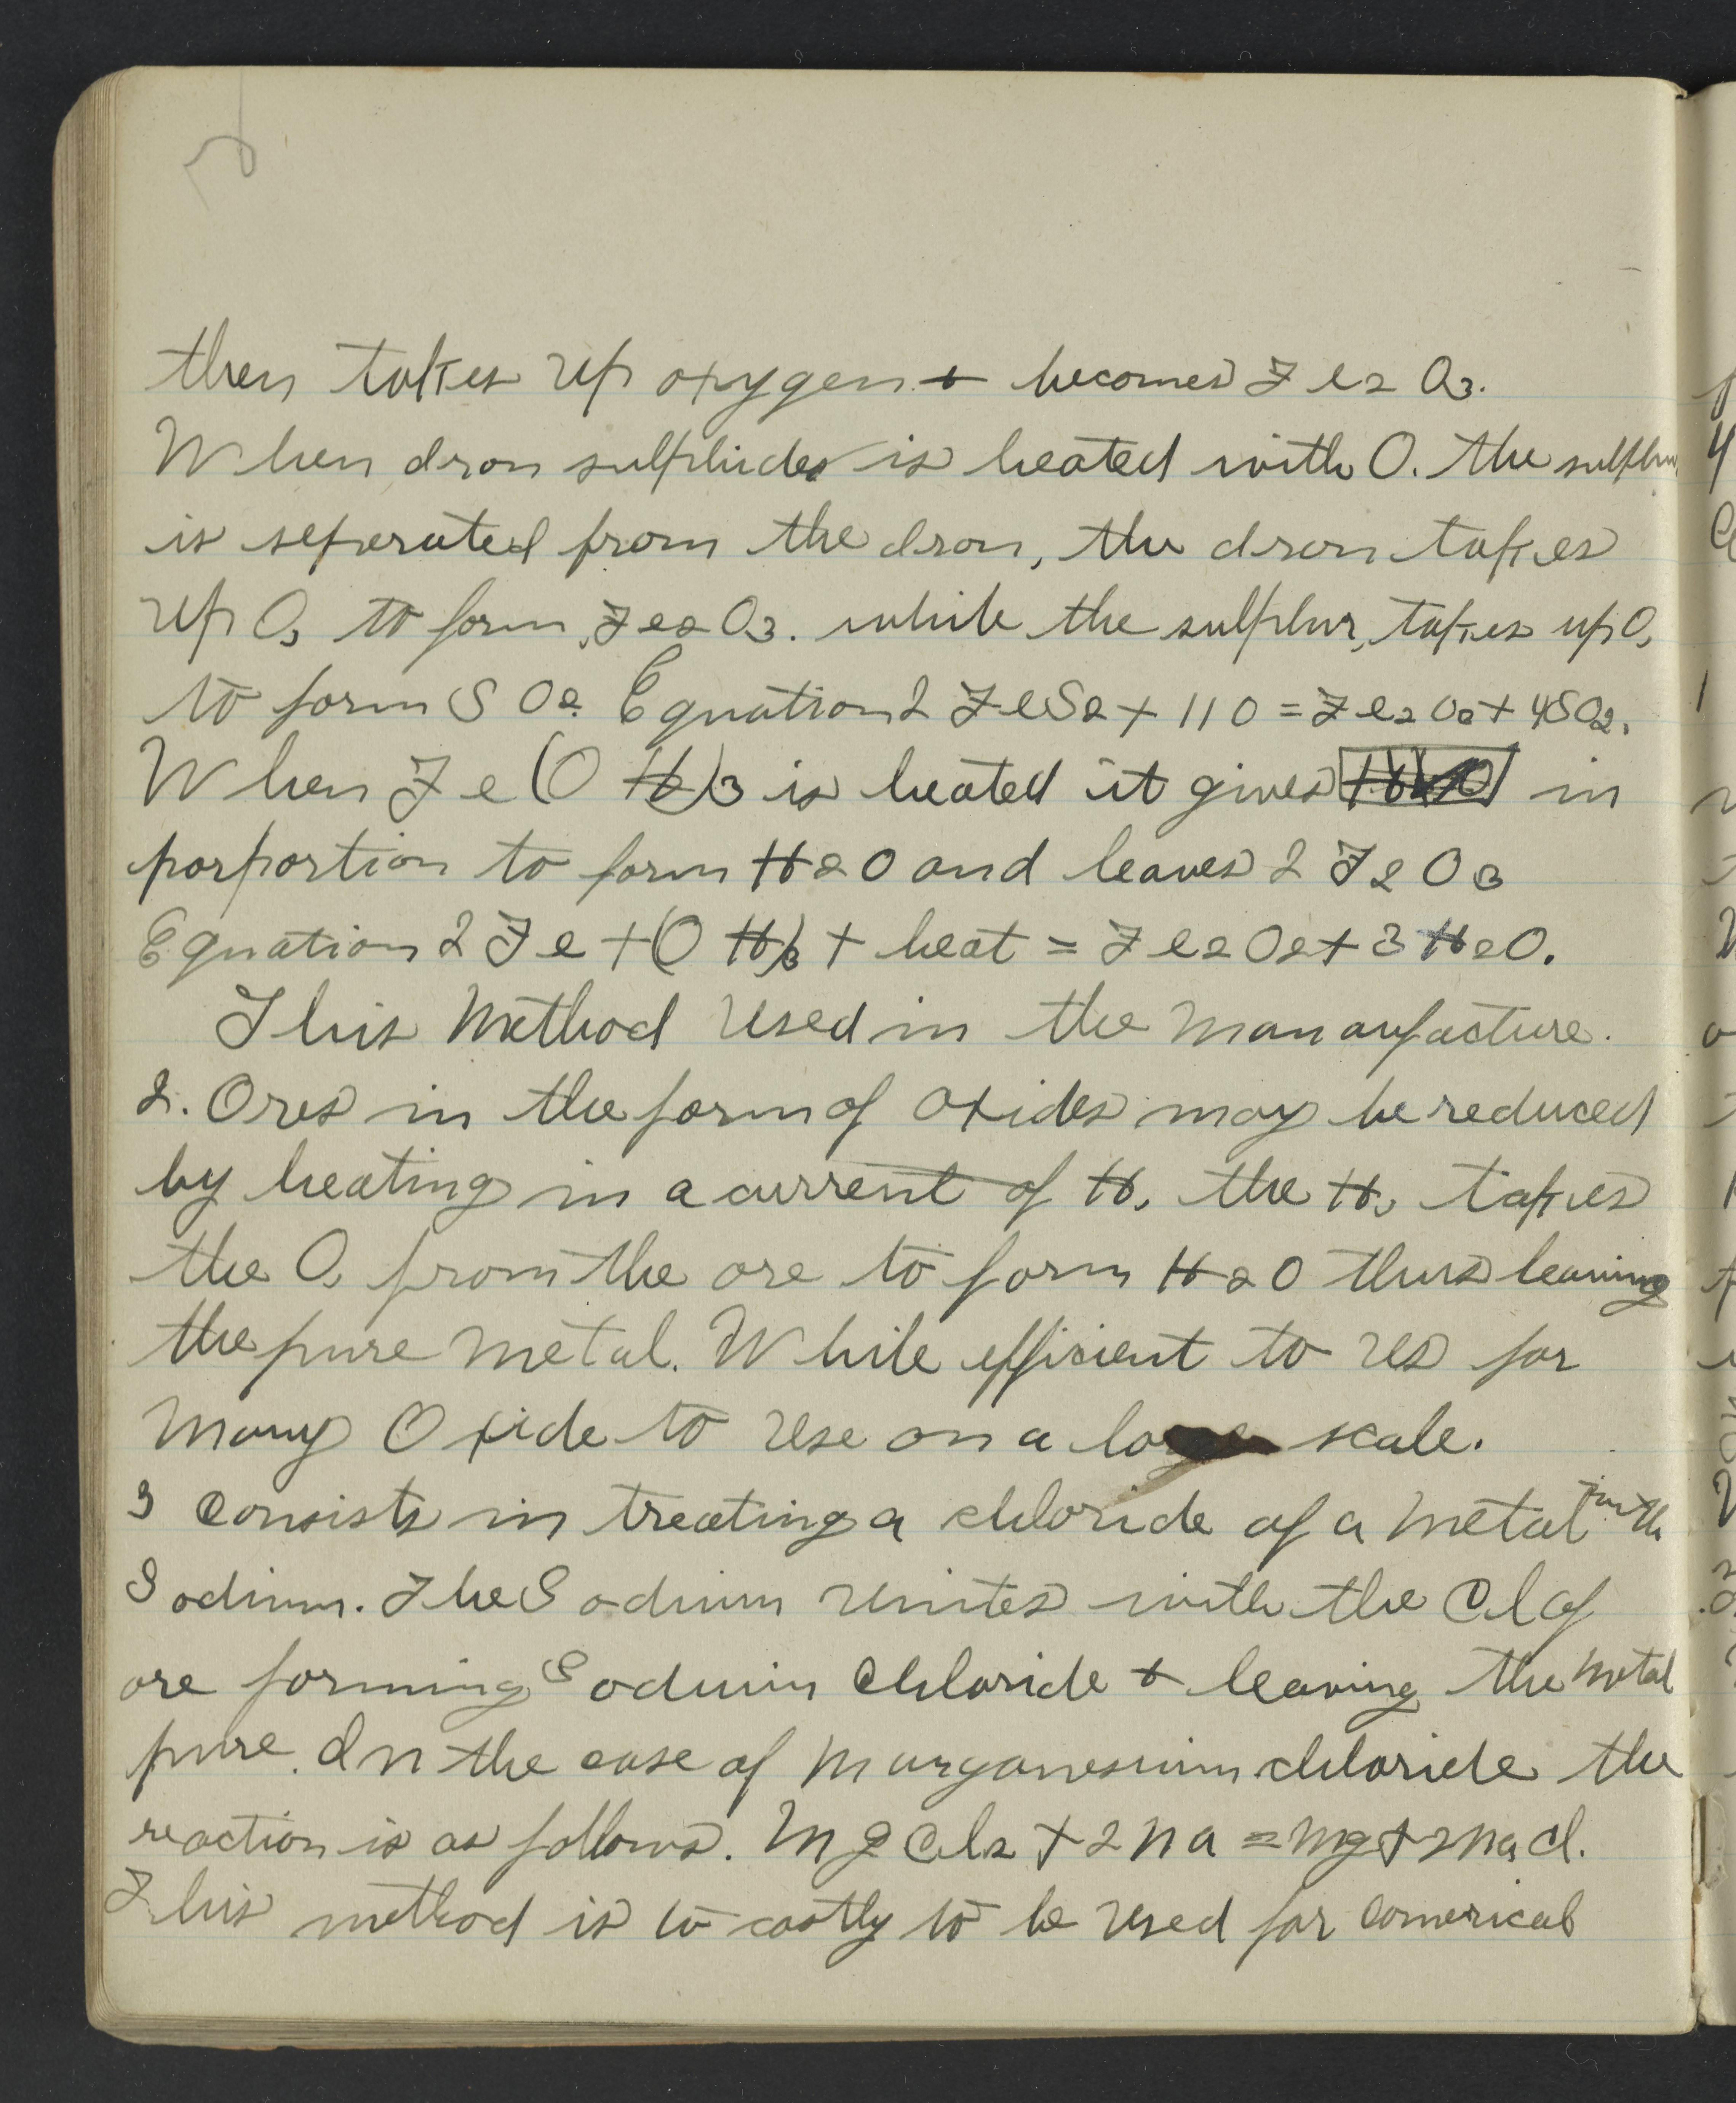 then takes up oxygen + becomes Fe2 O3.
When Iron sulphides is heated with O. the sulphur
is seperated from the Iron, the Iron takes
up O, to form, Fe2 O3. while the sulphur, takes up O,
to form S O2. Equation 2 FeS2 + 11 O = Fe2 O2 + 4SO2.
When Fe (O H)3 is heated it gives in
porportion to form H2O and leaves 2 F2 O3
Equation 2 Fe + (O H)3 + heat = Fe2 O2 + 3 H2O.
This Method Used in the Manaufacture.
2. Ores in the form of Oxides may be reduced
by heating in a current of H, the H, takes
the O, from the ore to form H2O thus leaving
the pure Metal. While efficient to Us for
Many Oxide to Use on a scale.
3 Consists in treating a chloride of a Metal with
Sodium. The Sodium Unites with the Cl of
ore forming Sodium Chloride + leaving the Metal
pure. In the case of Marganesium chloride the
reaction is as follows. Mg Cl2 + 2 Na = Mg + 2 Na Cl.
This method is to costly to be Used for Comerical